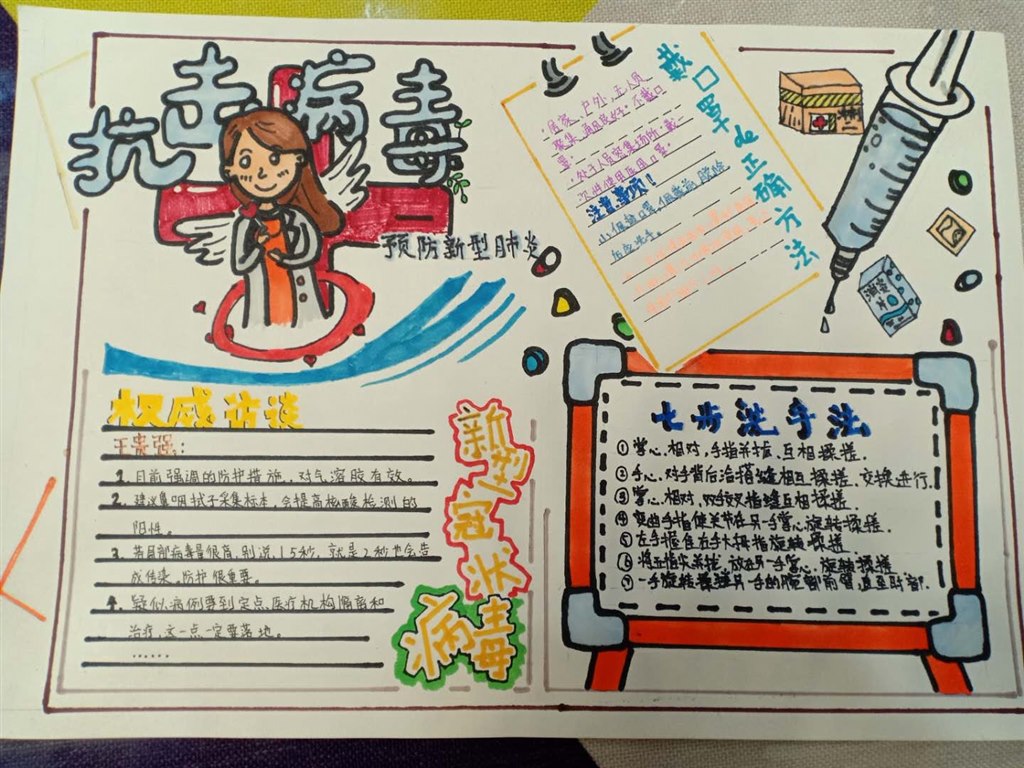 抗击病毒
预防新型肺炎
戴口罩的正确方法
·居家、户外,无人员
聚集、通风良好:不戴口
罩。
·处于人员密集场所,戴
一次性使用医用口罩。
注意事项!
权威访谈
王贵强:
1. 目前强调的防护措施,对气溶胶有效。
2. 建议鼻咽拭子采集标本,会提高核酸检测的
阳性。
3. 若局部病毒量很高,别说15秒,就是2秒也会造
成传染,防护很重要。
4. 疑似病例要到定点医疗机构隔离和
治疗,这一点一定要落地。
……
新型冠状
病毒
七步洗手法
①掌心相对,手指并拢,互相揉搓。
②手心对手背后沿指缝相互揉搓,交换进行。
③掌心相对,双手交叉指缝互相揉搓。
④弯曲手指使关节在另一手掌心旋转揉搓。
⑤右手握住左手大拇指旋转揉搓。
⑥将五指尖并拢,放在另一手掌心,旋转揉搓
⑦一手旋转揉搓另一手的腕部前臂直至肘部.